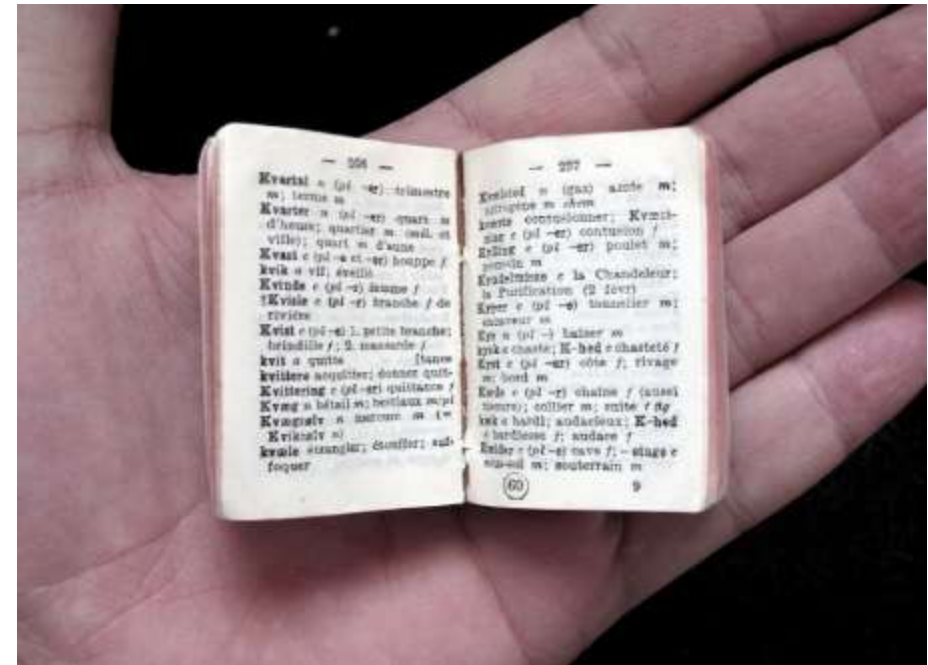 Kvartal n (pl -er) trimestre
m; terme m
Kvarter n (pl -er) quart m
d'heure; quartier m (mil. et
ville); quart m d'aune
Kvast c (pl -e et -er) houppe f
kvik a vif; éveillé
Kvinde c (pl -r) femme f
†Kvisle c (pl -r) branche f de
rivière
Kvist c (pl -e) 1. petite branche;
brindille f; 2. mansarde f
kvit a quitte [tance
kvittere acquitter; donner quit-
Kvittering c (pl -er) quittance f
Kvæg n bétail m; bestiaux m/pl
Kvægsølv n mercure m (=
Kviksølv n)
kvæle étrangler; étouffer; suf-
foquer
— 257 —
Kvælstof n (gas) azote m;
nitrogène m chem
kvæste contusionner; Kvæst-
else c (pl -er) contusion f
Kylling c (pl -er) poulet m;
poussin m
Kyndelmisse c la Chandeleur;
la Purification (2 févr)
Kyper c (pl -e) tonnelier m;
encaveur m
Kys n (pl -) baiser m
kysk a chaste; K-hed c chasteté f
Kyst c (pl -er) côte f; rivage
m; bord m
Kæde c (pl -r) chaîne f (aussi
mesure); collier m; suite f fig
kæk a hardi; audacieux; K-hed
c hardiesse f; audace f
Kælder c (pl -e) cave f; - etage c
sous-sol m; souterrain m
60 9